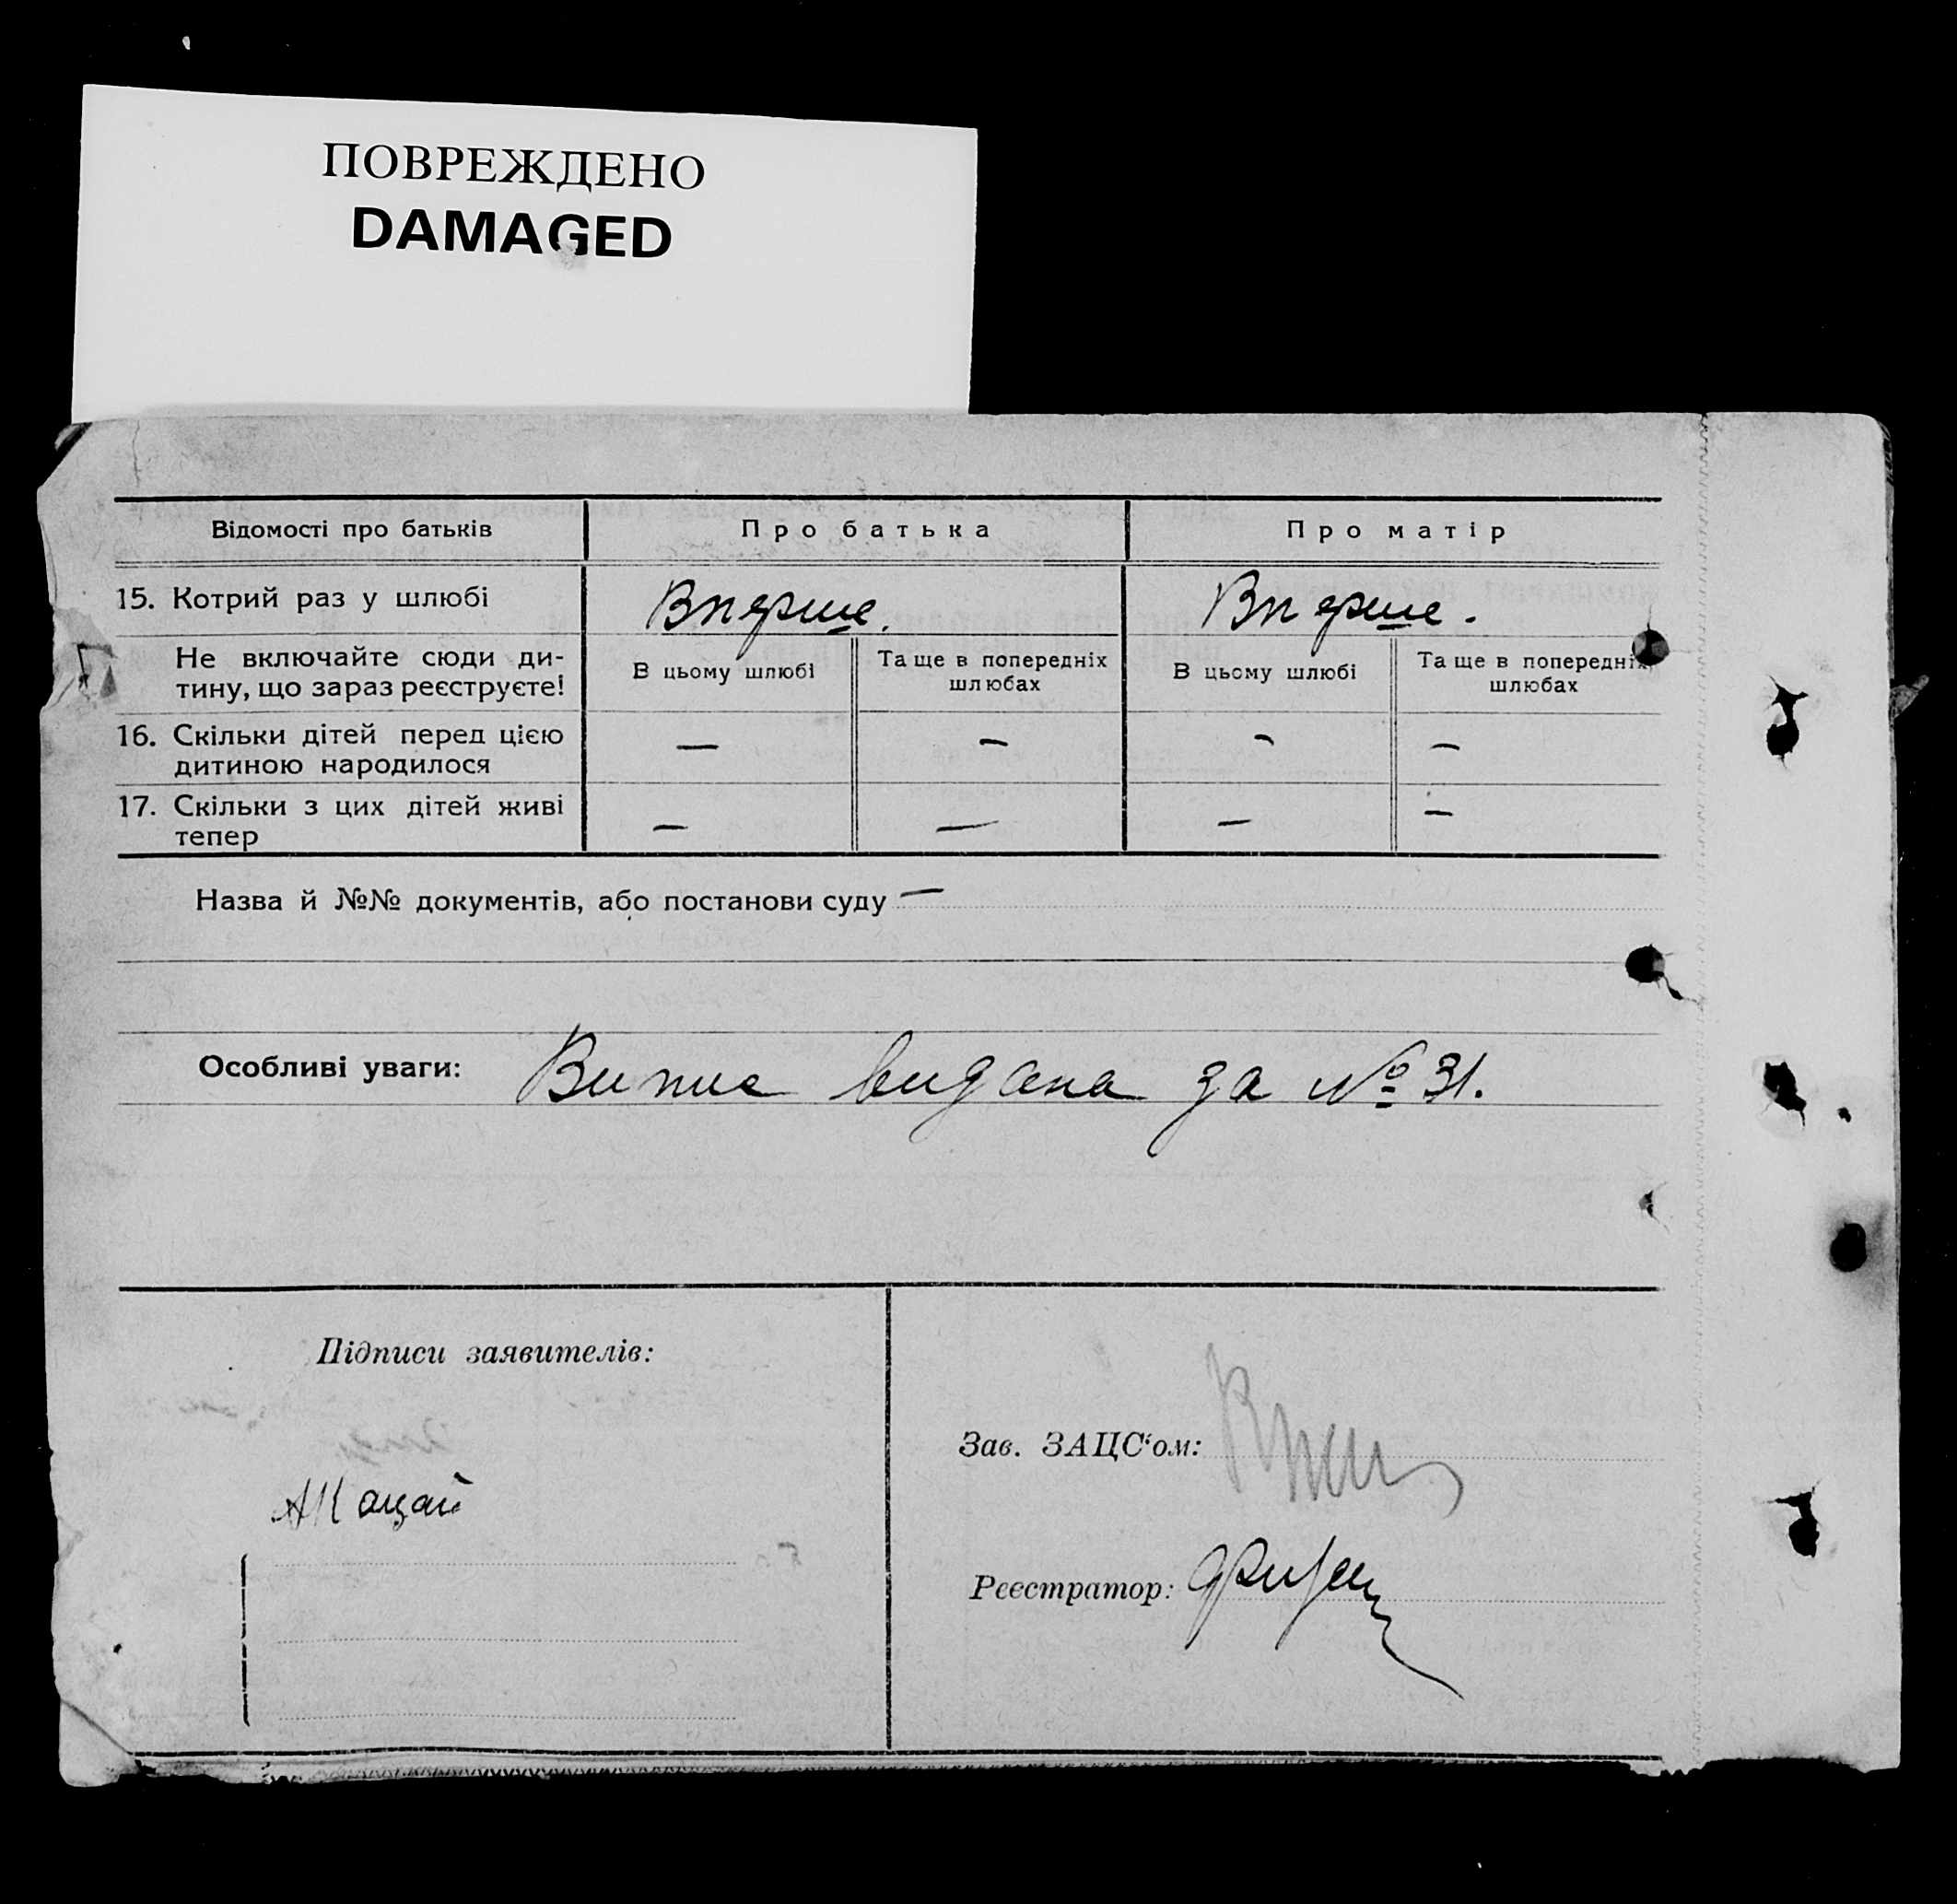 ПОВРЕЖДЕНО
DAMAGED
Відомості про батьків Про батька Про матір
15. Котрий раз у шлюбі Вперше. Вперше.
Не включайте сюди ди-
тину, що зараз реєструєте!
В цьому шлюбі Та ще в попередніх
шлюбах
В цьому шлюбі Та ще в попередніх
шлюбах
16. Скільки дітей перед цією
дитиною народилося
— — — —
17. Скільки з цих дітей живі
тепер
— — — —
Назва й №№ документів, або постанови суду —
Особливі уваги: Випис видана за № 31.
Підписи заявителів:
Зав. ЗАЦС‘ом:
АКацай
Реєстратор: